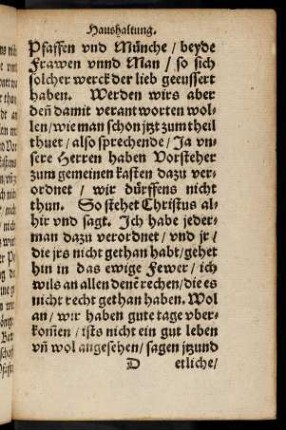 Haushaltung.
Pfaffen vnd Münche / beyde
Frawen vnnd Man / so sich
solcher werck der lieb geeussert
haben. Werden wirs aber
deñ damit verantworten wol-
len / wie man schon jtzt zum theil
thuet / also sprechende / Ja vn-
sere Herren haben Vorsteher
zum gemeinen kasten dazu ver-
ordnet / wir dürffens nicht
thun. So stehet Christus al-
hir vnd sagt. Ich habe jeder-
man dazu verordnet / vnd jr /
die jrs nicht gethan habt / gehet
hin in das ewige Fewer / ich
wils an allen denē rechen / die es
nicht recht gethan haben. Wol
an / wir haben gute tage vber-
kom̄en / ists nicht ein gut leben
vñ wol angesehen / sagen jtzund
D etliche /